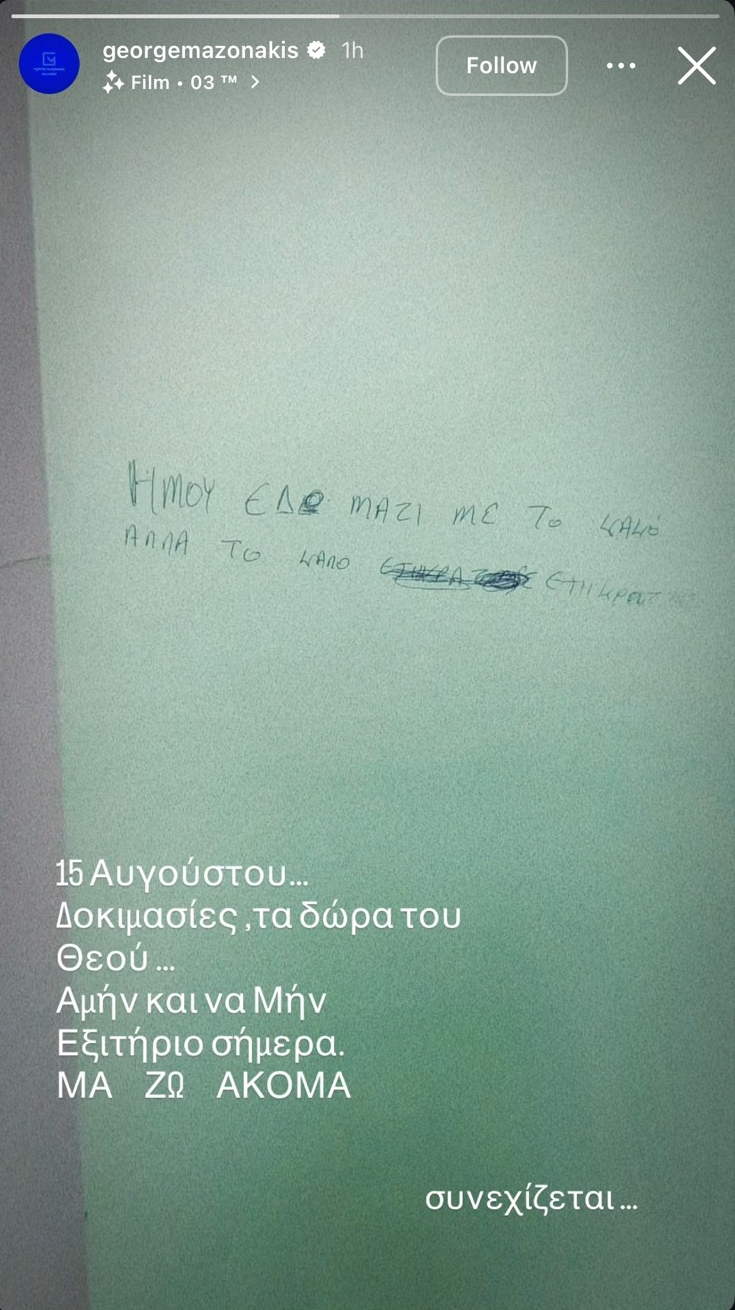 georgemazonakis 1h
Film • 03 ™ >
Follow
ΗΜΟΥ ΕΔΩ ΜΑΖΙ ΜΕ ΤΟ ΚΑΚΟ
ΑΛΛΑ ΤΟ ΚΑΛΟ
15 Αυγούστου...
Δοκιμασίες ,τα δώρα του
Θεού ...
Αμήν και να Μήν
Εξιτήριο σήμερα.
ΜΑ ΖΩ ΑΚΟΜΑ
συνεχίζεται ...